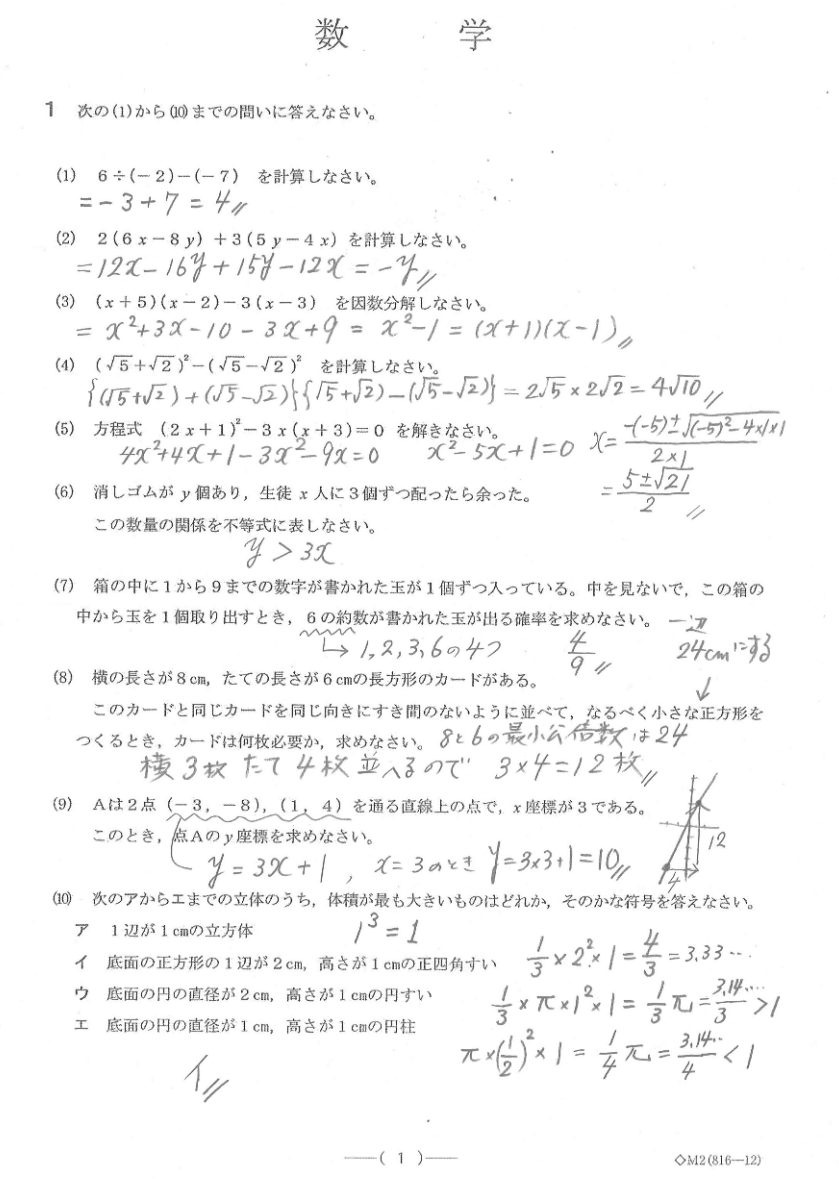 数 学
1 次の(1)から(10)までの問いに答えなさい。
(1) 6÷(−2)−(−7) を計算しなさい。
=−3+7=4〃
(2) 2(6x−8y)+3(5y−4x) を計算しなさい。
=12x−16y+15y−12x=−y〃
(3) (x+5)(x−2)−3(x−3) を因数分解しなさい。
= x²+3x−10−3x+9 = x²−1 = (x+1)(x−1)〃
(4) (√5+√2)²−(√5−√2)² を計算しなさい。
{(√5+√2)+(√5−√2)}{(√5+√2)−(√5−√2)}=2√5×2√2=4√10〃
(5) 方程式 (2x+1)²−3x(x+3)=0 を解きなさい。
4x²+4x+1−3x²−9x=0 x²−5x+1=0 x=(−(−5)±√((−5)²−4×1×1))/(2×1)
=(5±√21)/2〃
(6) 消しゴムが y 個あり，生徒 x 人に3個ずつ配ったら余った。
この数量の関係を不等式に表しなさい。
y>3x
(7) 箱の中に1から9までの数字が書かれた玉が1個ずつ入っている。中を見ないで，この箱の
中から玉を1個取り出すとき，6の約数が書かれた玉が出る確率を求めなさい。
→1,2,3,6の4つ 4/9〃
一辺
24cmにする
↓
(8) 横の長さが8cm，たての長さが6cmの長方形のカードがある。
このカードと同じカードを同じ向きにすき間のないように並べて，なるべく小さな正方形を
つくるとき，カードは何枚必要か，求めなさい。 8と6の最小公倍数は24
横3枚 たて4枚並べるので 3×4=12枚〃
(9) Aは2点(−3，−8)，(1，4)を通る直線上の点で，x座標が3である。
このとき，点Aのy座標を求めなさい。
y=3x+1 , x=3のとき y=3×3+1=10〃
12
4
(10) 次のアからエまでの立体のうち，体積が最も大きいものはどれか，そのかな符号を答えなさい。
ア 1辺が1cmの立方体 1³=1
イ 底面の正方形の1辺が2cm，高さが1cmの正四角すい 1/3×2²×1=4/3=3.33…
ウ 底面の円の直径が2cm，高さが1cmの円すい 1/3×π×1²×1=1/3π=3.14…/3>1
エ 底面の円の直径が1cm，高さが1cmの円柱
π×(1/2)²×1=1/4π=3.14…/4<1
イ〃
—( 1 )—
◇M2(816—12)